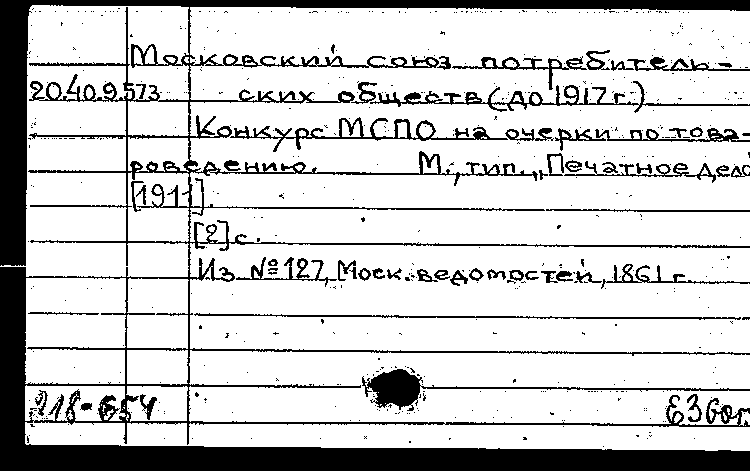 Московский союз потребитель-
20.40.9.573 ских обществ (до 1917 г.)
Конкурс МСПО на очерки по това-
роведению. М., тип. „Печатное дело
[1911].
[2] с.
Из № 127, Моск. ведомостей, 1861 г.
218-654